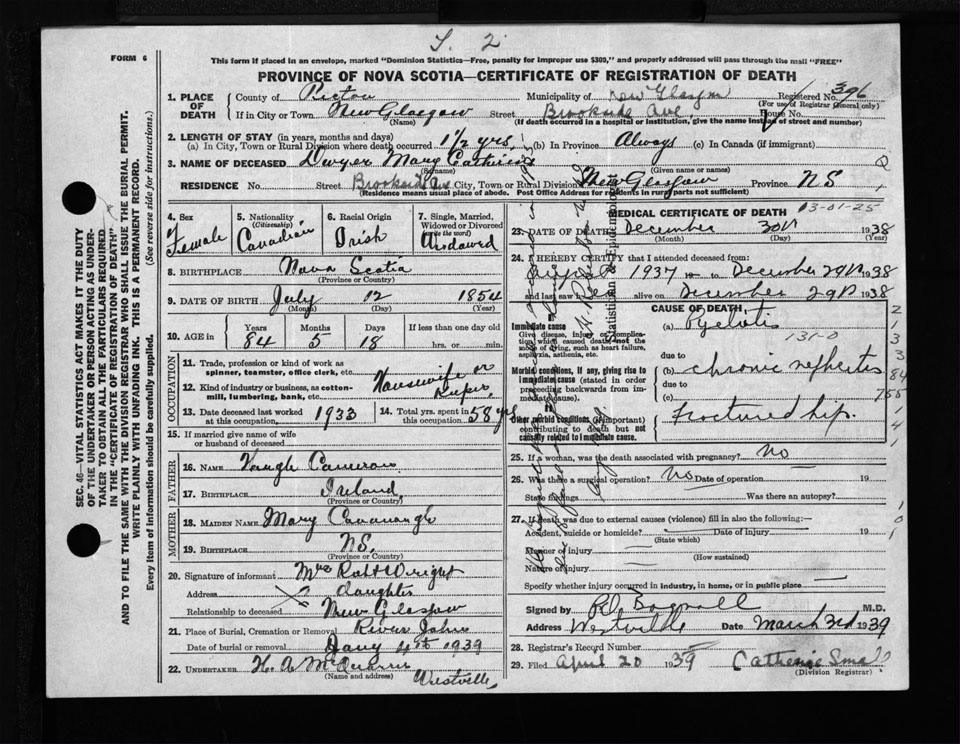 S. 2
FORM 6
This form if placed in an envelope, marked "Dominion Statistics—Free, penalty for improper use $300," and properly addressed will pass through the mail "FREE"
PROVINCE OF NOVA SCOTIA—CERTIFICATE OF REGISTRATION OF DEATH
1. PLACE OF DEATH County of Pictou Municipality of New Glasgow Registered No. 396
(For use of Registrar General only)
If in City or Town New Glasgow Street Brookside Ave. House No.
(Name) (If death occurred in a hospital or institution, give the name instead of street and number)
2. LENGTH OF STAY (in years, months and days)
(a) In City, Town or Rural Division where death occurred 1 1/2 yrs. (b) In Province Always (c) In Canada (if immigrant)
3. NAME OF DECEASED Dwyer Mary Catherine
(Surname) (Given name or names)
RESIDENCE No. Street Brookside Av City, Town or Rural Division New Glasgow Province N.S.
(Residence means usual place of abode. Post Office Address for residents in rural parts not sufficient)
4. Sex Female
5. Nationality (Citizenship) Canadian
6. Racial Origin Irish
7. Single, Married, Widowed or Divorced (write the word) Widowed
8. BIRTHPLACE Nova Scotia
(Province or Country)
9. DATE OF BIRTH July 12 1854
(Month) (Day) (Year)
10. AGE in Years 84 Months 5 Days 18 If less than one day old
hrs. or min.
OCCUPATION
11. Trade, profession or kind of work as spinner, teamster, office clerk, etc.
12. Kind of industry or business, as cotton-mill, lumbering, bank, etc.
Housewife or Keeper
13. Date deceased last worked at this occupation. 1933
14. Total yrs. spent in this occupation. 58 yrs
15. If married give name of wife or husband of deceased
FATHER
16. NAME Cameron
17. BIRTHPLACE Ireland
(Province or Country)
MOTHER
18. MAIDEN NAME Mary Cavanaugh
19. BIRTHPLACE N.S.
(Province or Country)
20. Signature of informant Mrs Robt Wright
Address daughter
Relationship to deceased New Glasgow
21. Place of Burial, Cremation or Removal River John
Date of burial or removal Jany 4th 1939
22. UNDERTAKER H. A.
(Name and address) Westville
MEDICAL CERTIFICATE OF DEATH 3-01-25
23. DATE OF DEATH December 30th 1938
(Month) (Day) (Year)
24. I HEREBY CERTIFY that I attended deceased from:
1937 to December 29th 1938
and last saw her alive on December 29th 1938
CAUSE OF DEATH
Immediate cause
Give disease, injury or complication which caused death, not the mode of dying, such as heart failure, asphyxia, asthenia, etc.
(a) Pyelitis
131-0
due to
Morbid conditions, if any, giving rise to immediate cause (stated in order proceeding backwards from immediate cause).
(b) chronic nephritis
due to
(c)
Other morbid conditions (if important) contributing to death but not causally related to immediate cause.
Fractured hip.
25. If a woman, was the death associated with pregnancy? No
26. Was there a surgical operation? No Date of operation 19
State findings Was there an autopsy?
27. If death was due to external causes (violence) fill in also the following:—
Accident, suicide or homicide? Date of injury 19
(State which)
Manner of injury
(How sustained)
Nature of injury
Specify whether injury occurred in industry, in home, or in public place
Signed by Bagnall M.D.
Address Westville Date March 3rd 1939
28. Registrar's Record No.
29. Filed April 20 1939 Catherine Small
(Division Registrar)
SEC. 46—VITAL STATISTICS ACT MAKES IT THE DUTY
OF THE UNDERTAKER OR PERSON ACTING AS UNDER-
TAKER TO OBTAIN ALL THE PARTICULARS REQUIRED
IN THE "CERTIFICATE OF REGISTRATION OF DEATH"
AND TO FILE THE SAME WITH THE DIVISION REGISTRAR WHO SHALL ISSUE THE BURIAL PERMIT.
WRITE PLAINLY WITH UNFADING INK. THIS IS A PERMANENT RECORD.
Every item of information should be carefully supplied. (See reverse side for instructions.)